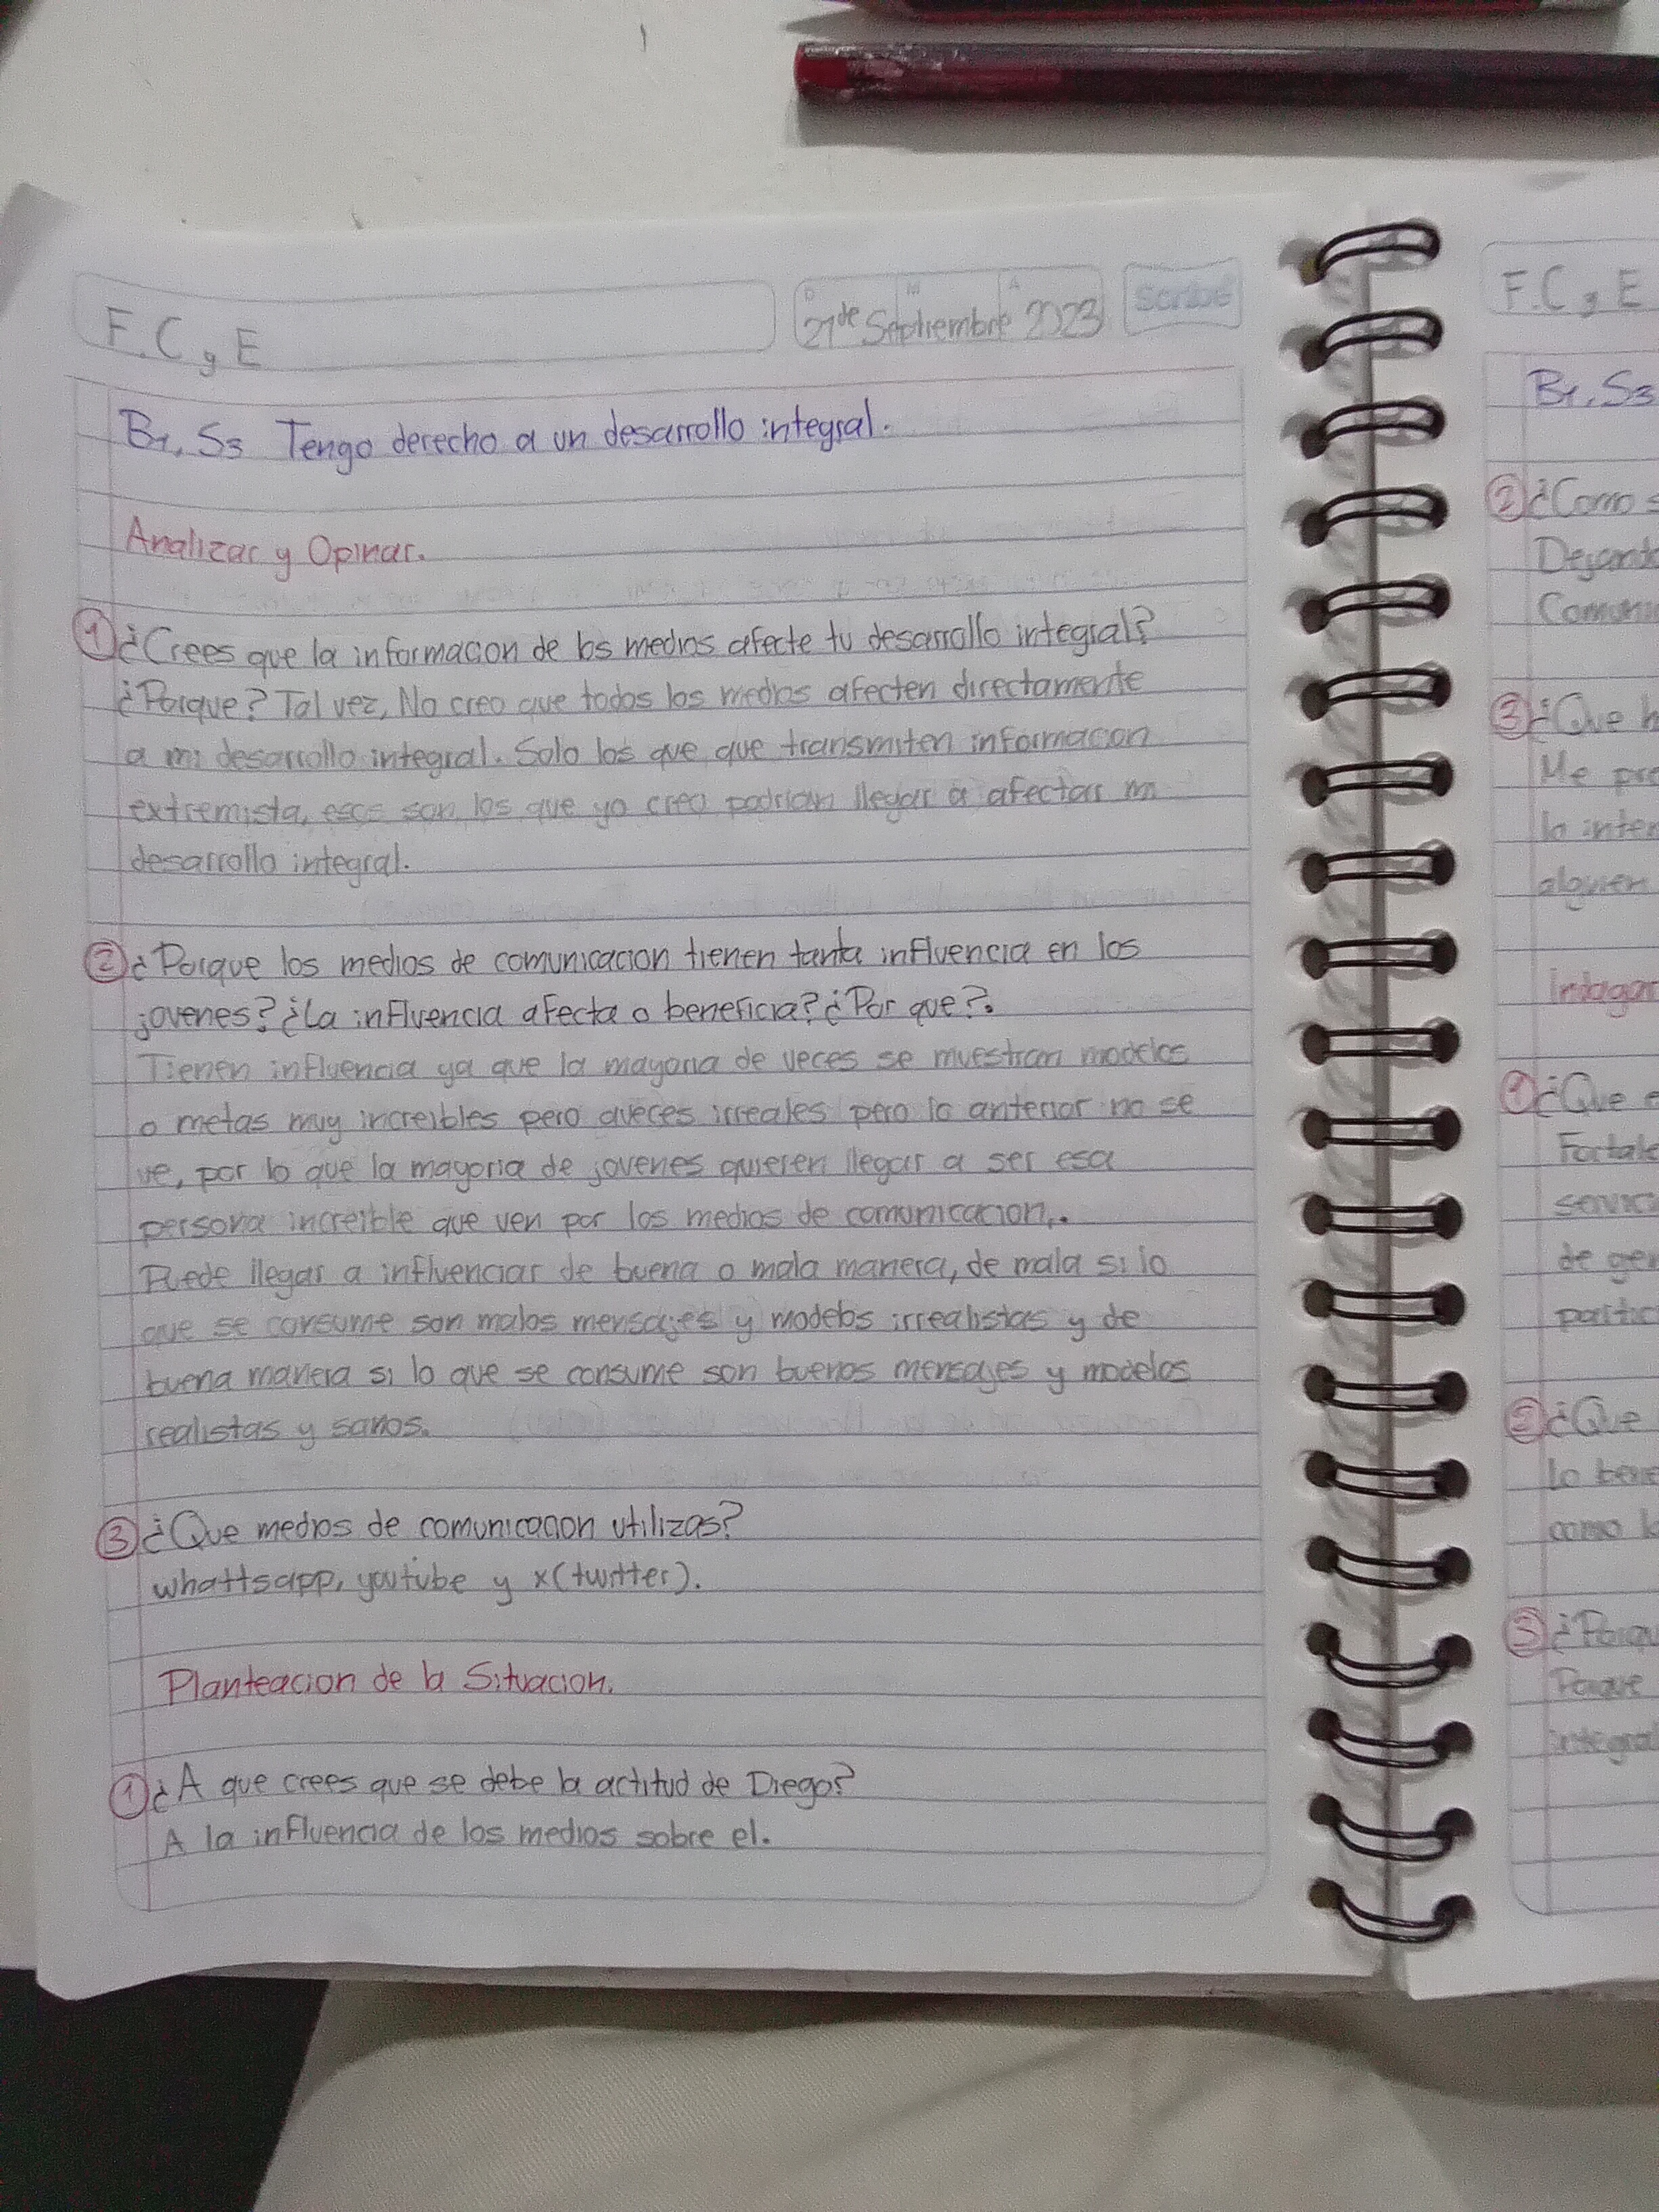 F.C y E
D M A
21 de Septiembre 2023
Scribe
B1, S3 Tengo derecho a un desarrollo integral.
Analizar y Opinar.
1 ¿Crees que la informacion de los medios afecte tu desarrollo integral?
¿Porque? Tal vez, No creo que todos los medios afecten directamente
a mi desarrollo integral. Solo los que que transmiten informacion
extremista, esos son los que yo creo podrian llegar a afectar mi
desarrollo integral.
2 ¿Porque los medios de comunicacion tienen tanta influencia en los
jovenes? ¿La influencia afecta o beneficia? ¿Por que?.
Tienen influencia ya que la mayoria de veces se muestran modelos
o metas muy increibles pero aveces irreales pero lo anterior no se
ve, por lo que la mayoria de jovenes quieren llegar a ser esa
persona increible que ven por los medios de comunicacion,.
Puede llegar a influenciar de buena o mala manera, de mala si lo
que se consume son malos mensajes y modelos irrealistas y de
buena manera si lo que se consume son buenos mensajes y modelos
realistas y sanos.
3 ¿Que medios de comunicacion utilizas?
whattsapp, youtube y x(twitter).
Planteacion de la Situacion.
1 ¿A que crees que se debe la actitud de Diego?
A la influencia de los medios sobre el.
F.C y E
B1, S3
2 ¿Como s
Dejando
Comuni
3 ¿Que h
Me pre
la inter
alguien
Indagar
1 ¿Que e
Fortale
servici
de gen
partic
2 ¿Que
lo bene
como l
3 ¿Porqu
Porque
integral